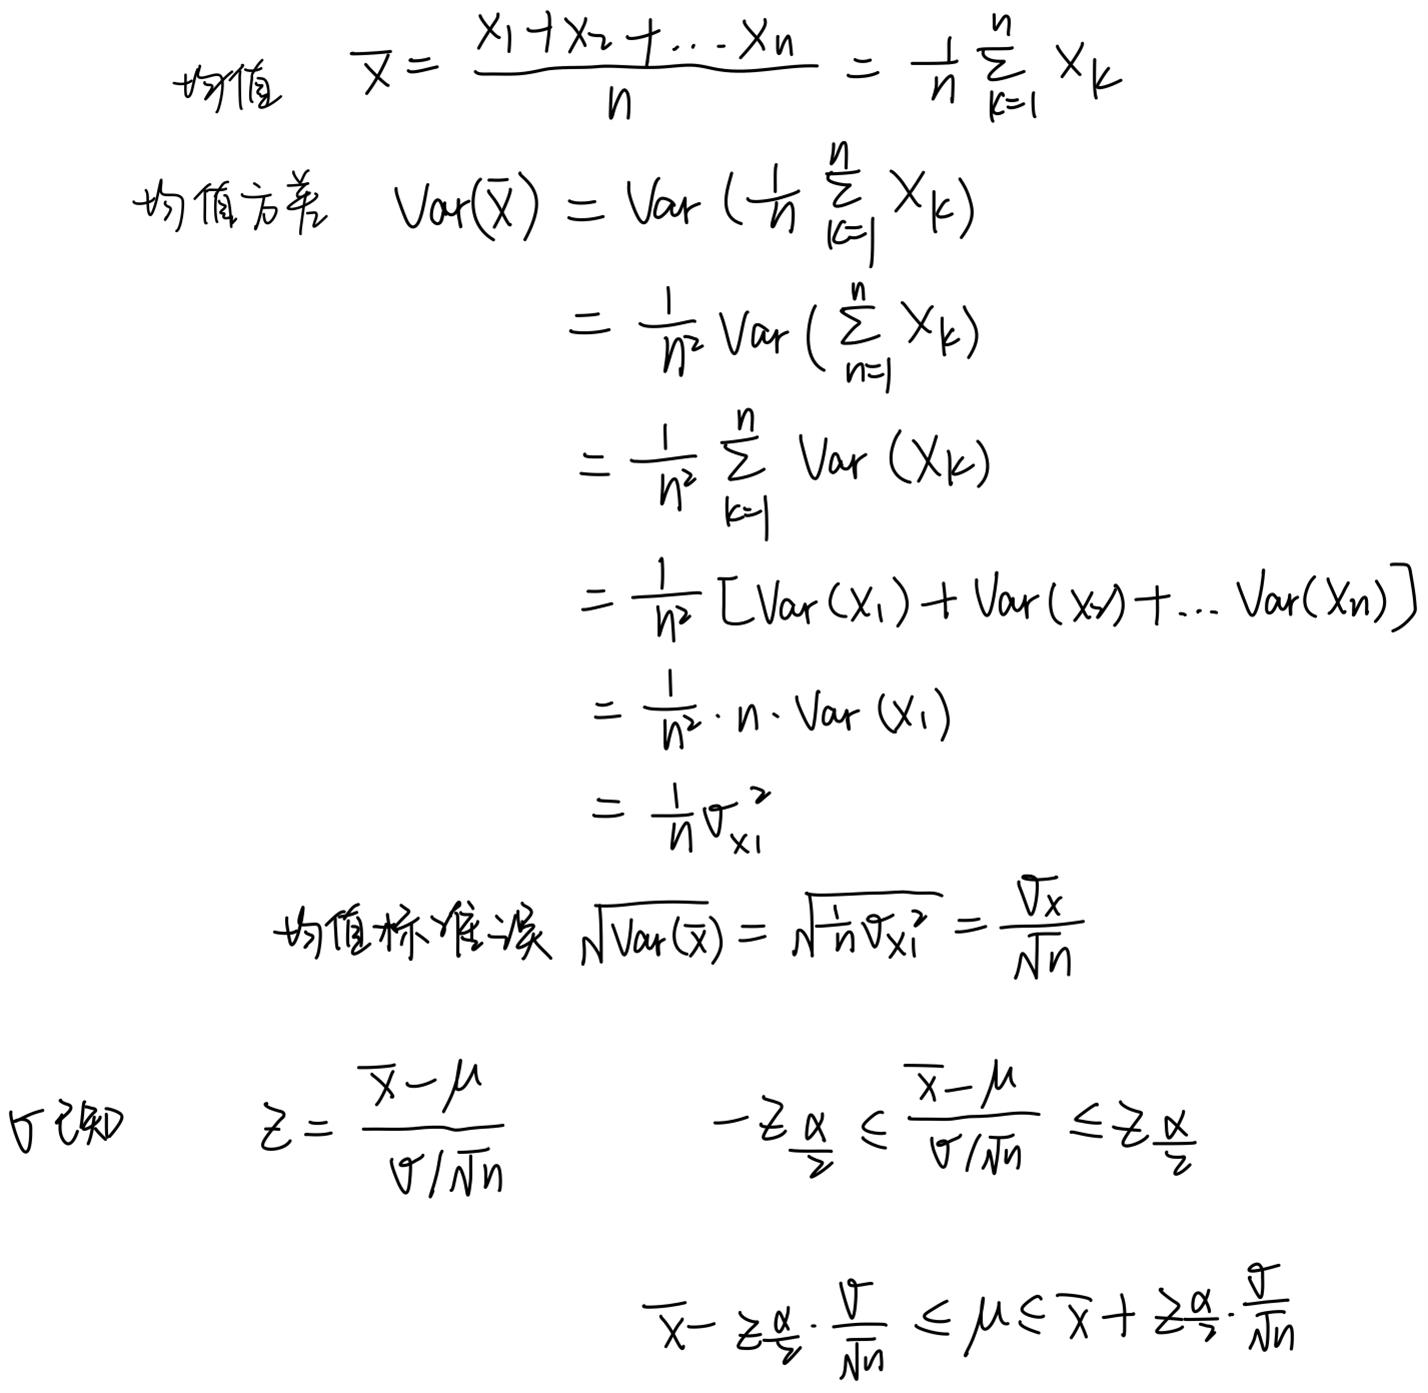 均值 x̄ = (x₁+x₂+…xₙ)/n = 1/n ∑ₖ₌₁ⁿ xₖ
均值方差 Var(x̄) = Var(1/n ∑ₖ₌₁ⁿ xₖ)
= 1/n² Var(∑ₙ₌₁ⁿ xₖ)
= 1/n² ∑ₖ₌₁ⁿ Var(xₖ)
= 1/n² [Var(x₁)+Var(x₂)+…Var(xₙ)]
= 1/n² · n · Var(x₁)
= 1/n σₓ₁²
均值标准误 √Var(x̄) = √(1/n σₓ₁²) = σₓ/√n
σ已知 z = (x̄-μ)/(σ/√n) -z_(α/2) ≤ (x̄-μ)/(σ/√n) ≤ z_(α/2)
x̄ - z_(α/2) · σ/√n ≤ μ ≤ x̄ + z_(α/2) · σ/√n